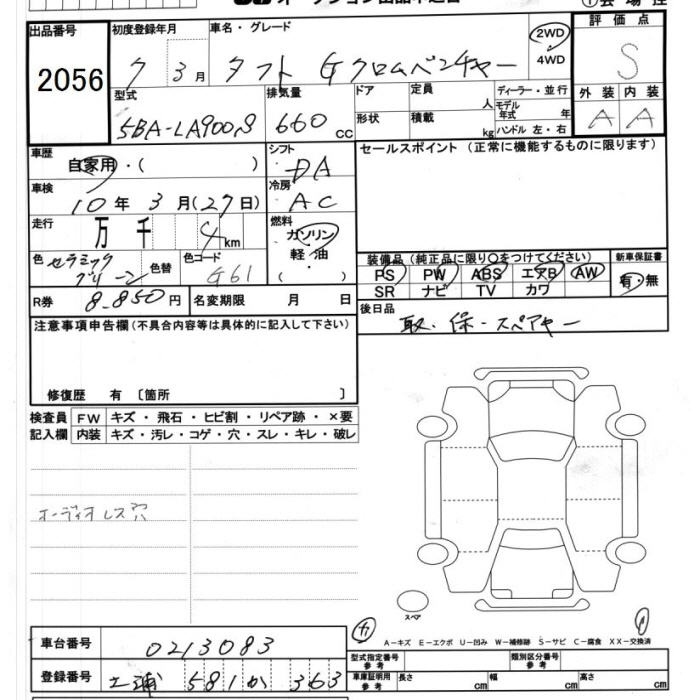 出品番号 初度登録年月 車名・グレード 2WD 4WD 評価点
2056 7 3月 タフト Gクロムベンチャー S
型式 排気量 ドア 定員 人 ディーラー・並行 外装 内装
5BA-LA900S 660 cc 形状 積載 kg モデル年式 年 ハンドル 左・右 A A
車歴 シフト セールスポイント (正常に機能するものに限ります)
自家用・( ) DA
車検 冷房
10年 3月(27日) AC
走行 燃料
万 千 4 km ガソリン
軽・油
( )
色 セラミックグリーン 色替 色コード G61
装備品(純正品に限り○をつけてください) 新車保証書
PS PW ABS エアB AW 有・無
SR ナビ TV カワ
R券 8-850円 名変期限 月 日
後日品 取・保・スペアキー
注意事項申告欄(不具合内容等は具体的に記入して下さい)
修復歴 有 〔箇所 〕
検査員 FW キズ・飛石・ヒビ割・リペア跡・×要
記入欄 内装 キズ・汚レ・コゲ・穴・スレ・キレ・破レ
オーディオレス穴
スペア
A-キズ E-エクボ U-凹み W-補修跡 S-サビ C-腐食 XX-交換済
車台番号 0213083
登録番号 土浦 581 か 363
型式指定番号 参考 類別区分番号 参考
車庫証明用 参考 長さ cm 幅 cm 高さ cm